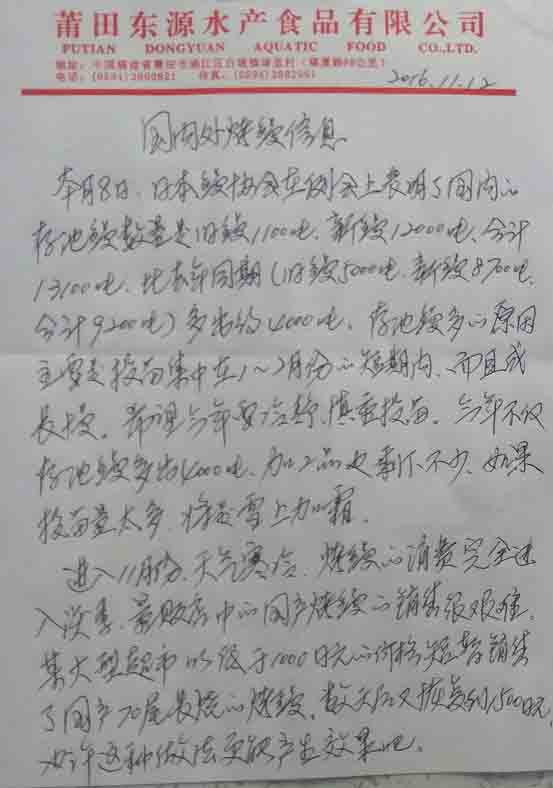 莆田东源水产食品有限公司
PUTIAN DONGYUAN AQUATIC FOOD CO.,LTD.
2016.11.12
国内外烤鳗信息
本月8日,日本鳗协会在例会上表明了国内的
存池鳗数量是旧鳗1100吨,新鳗12000吨,合计
13100吨,比去年同期(旧鳗5000吨,新鳗8700吨,
合计9200吨)多出约4000吨,存池鳗多的原因
主要是投苗集中在1~2月份的短期内,而且成
长慢。希望今年要冷静,慎重投苗。今年不仅
存池鳗多出4000吨,加工品也剩下不少,如果
投苗量太多,将是雪上加霜。
进入11月份,天气寒冷,烤鳗的消费完全进
入淡季,量贩店中的国产烤鳗的销售很艰难,
某大型超市以低于1000日元的价格短暂销售
了国产70尾长烧的烤鳗,数天后又恢复到1500日元,
也许这种做法更能产生效果吧。